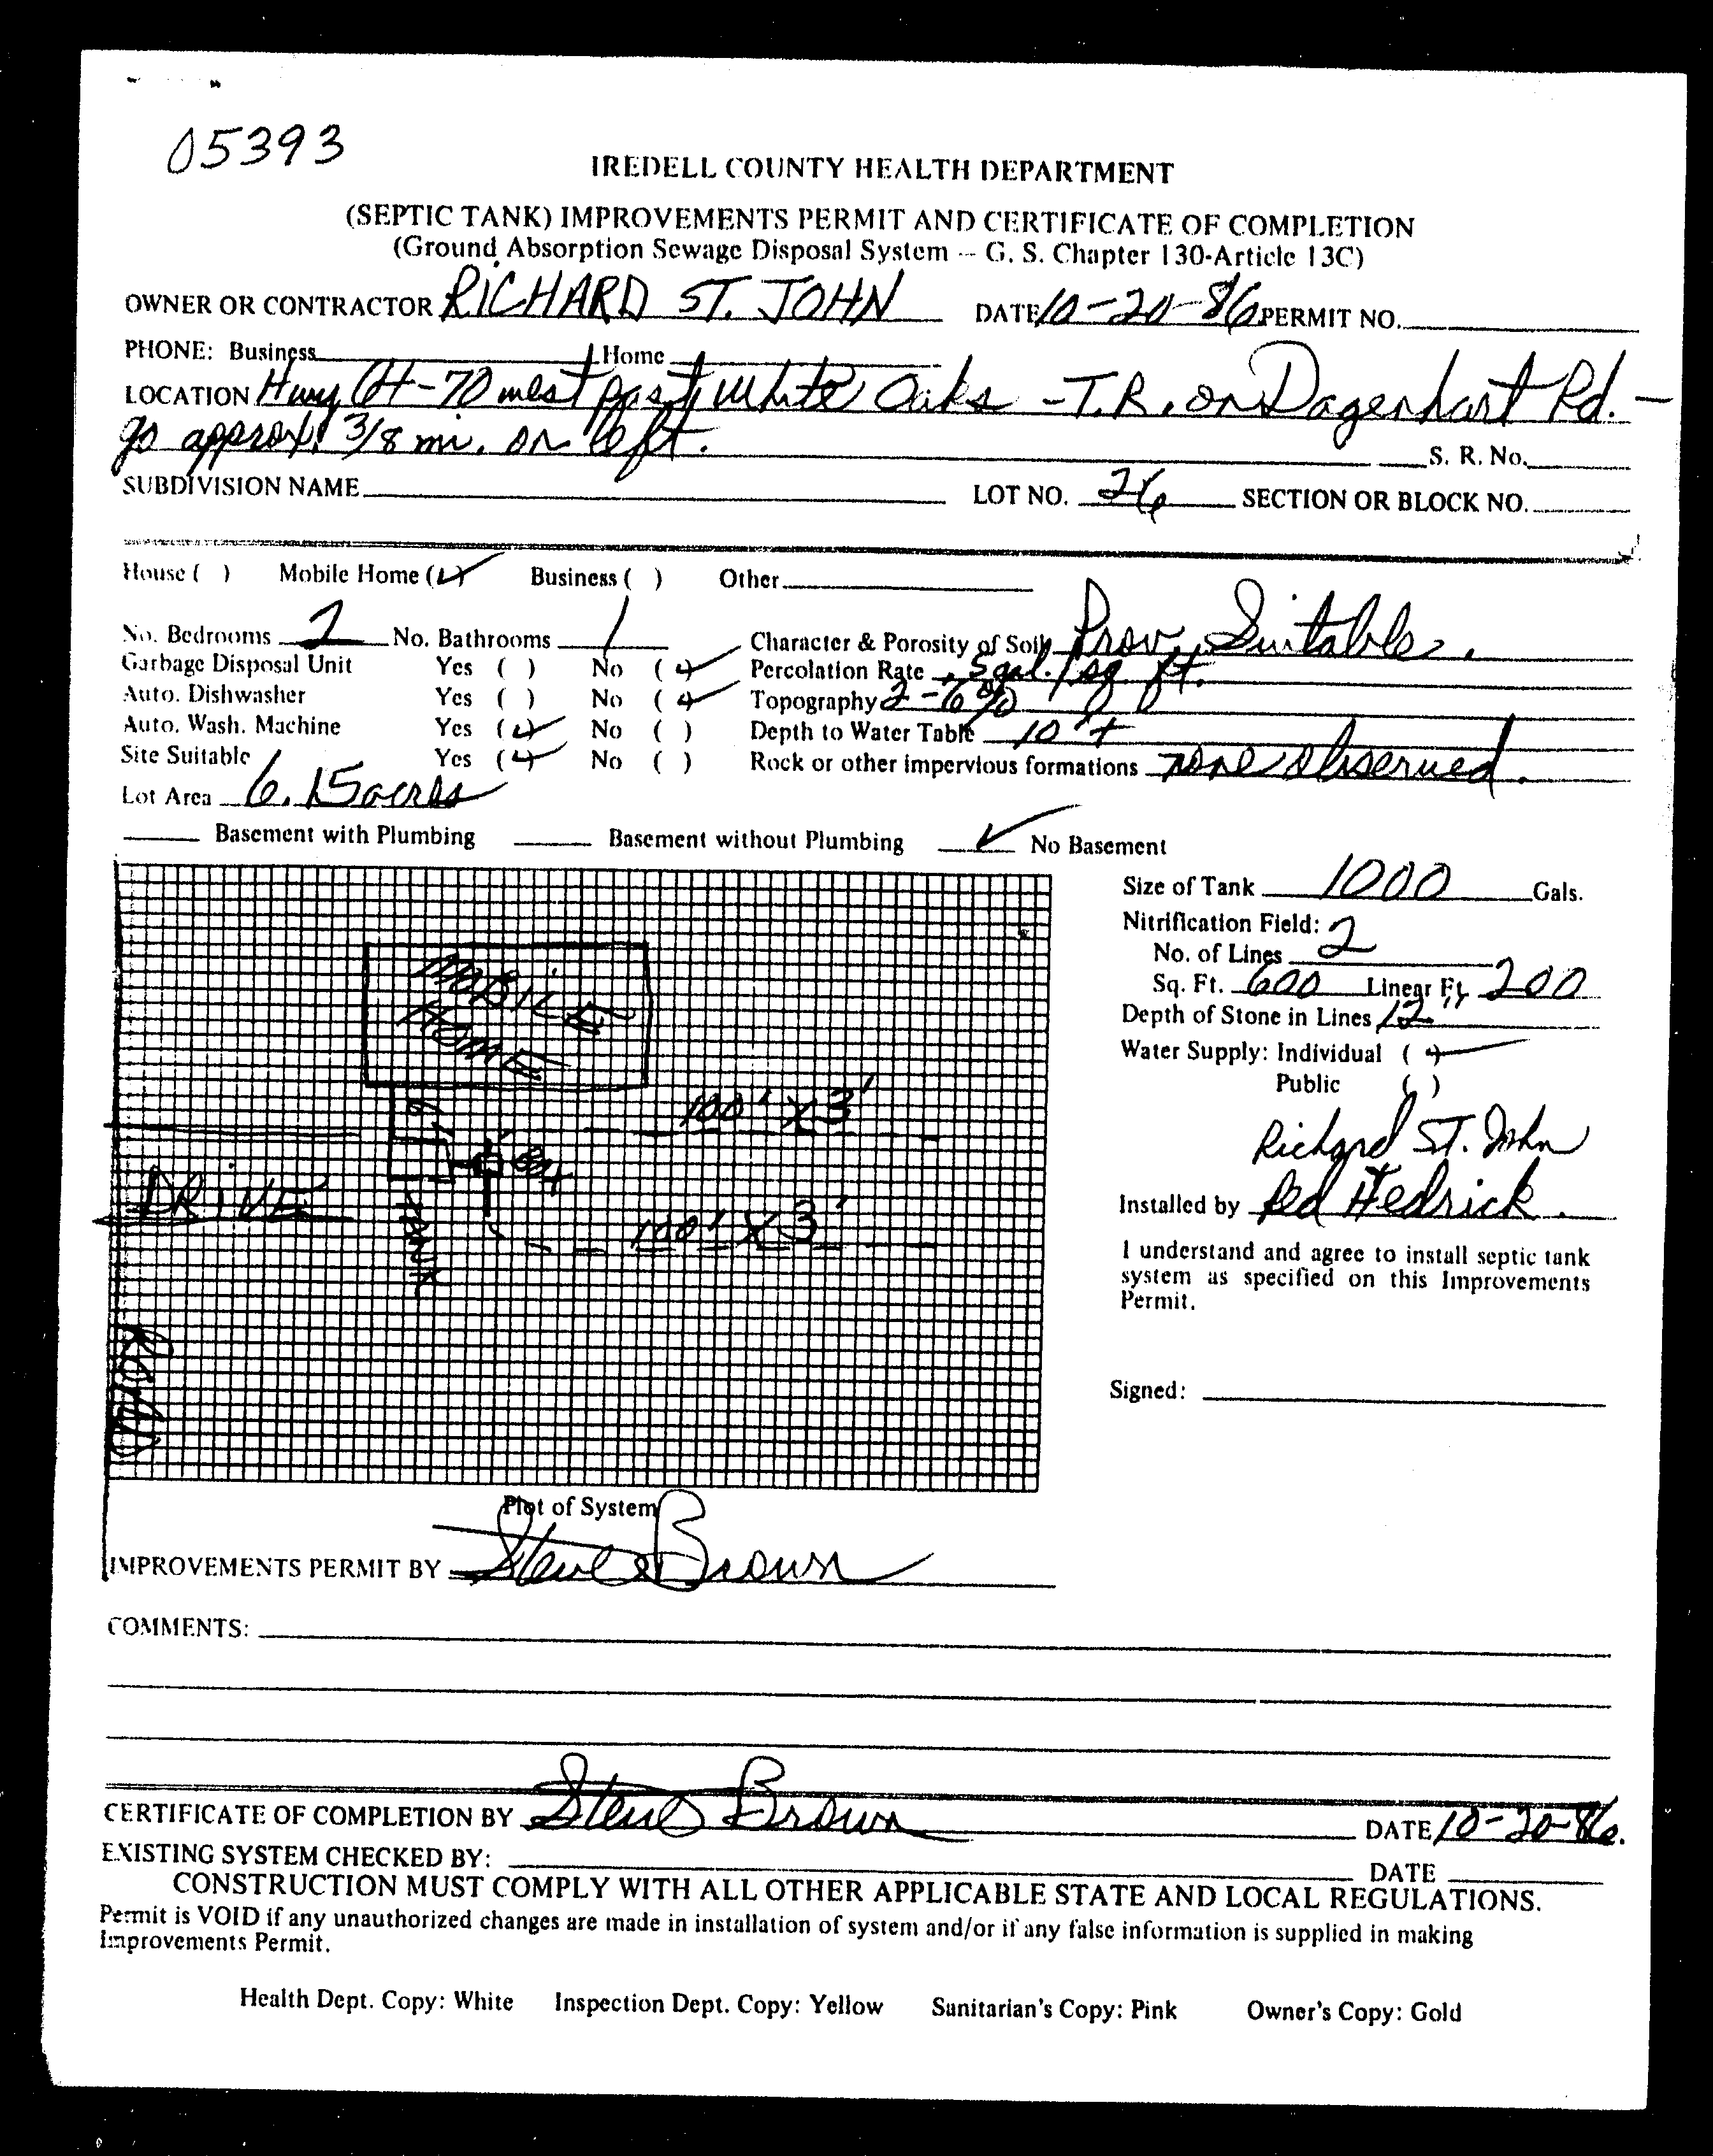 05393
IREDELL COUNTY HEALTH DEPARTMENT
(SEPTIC TANK) IMPROVEMENTS PERMIT AND CERTIFICATE OF COMPLETION
(Ground Absorption Sewage Disposal System -- G. S. Chapter 130-Article 13C)
OWNER OR CONTRACTOR RICHARD ST. JOHN DATE 10-20-86 PERMIT NO.
PHONE: Business Home
LOCATION Hwy 64-70 west past White Oaks - T.R. on Dagenhart Rd. -
go approx. 3/8 mi. on left. S. R. No.
SUBDIVISION NAME LOT NO. 26 SECTION OR BLOCK NO.
House ( ) Mobile Home (✓) Business ( ) Other
No. Bedrooms 2 No. Bathrooms 1 Character & Porosity of Soil Prov. Suitable.
Garbage Disposal Unit Yes ( ) No (✓) Percolation Rate .5 gal./sq. ft.
Auto. Dishwasher Yes ( ) No (✓) Topography 2-6%
Auto. Wash. Machine Yes (✓) No ( ) Depth to Water Table 10'+
Site Suitable Yes (✓) No ( ) Rock or other impervious formations none observed.
Lot Area 6.15 acres
Basement with Plumbing Basement without Plumbing ✓ No Basement
Size of Tank 1000 Gals.
Nitrification Field:
No. of Lines 2
Sq. Ft. 600 Linear Ft. 200
Depth of Stone in Lines 12"
Water Supply: Individual (✓)
Public ( )
Richard St. John
Installed by Red Hedrick.
I understand and agree to install septic tank
system as specified on this Improvements
Permit.
Signed:
MOBILE
HOME
100' X 3'
DRIVE
TANK
100' X 3'
ROAD
Plot of System
IMPROVEMENTS PERMIT BY Steve Brown
COMMENTS:
CERTIFICATE OF COMPLETION BY Steve Brown DATE 10-20-86.
EXISTING SYSTEM CHECKED BY: DATE
CONSTRUCTION MUST COMPLY WITH ALL OTHER APPLICABLE STATE AND LOCAL REGULATIONS.
Permit is VOID if any unauthorized changes are made in installation of system and/or if any false information is supplied in making
Improvements Permit.
Health Dept. Copy: White Inspection Dept. Copy: Yellow Sanitarian's Copy: Pink Owner's Copy: Gold